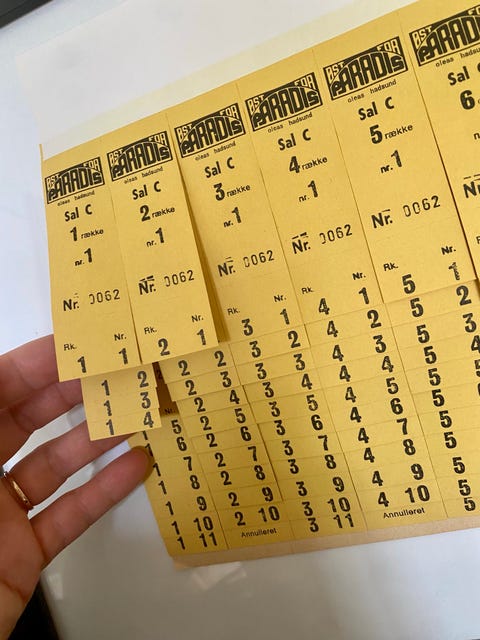 ØST FOR
PARADIS
oleas hadsund
Sal C
1 række
nr. 1
Nr. 0062
Rk. Nr.
1 1
1 2
1 3
1 4
Nr.
1 5
1 6
1 7
1 8
1 9
1 10
1 11
ØST FOR
PARADIS
oleas hadsund
Sal C
2 række
nr. 1
Nr. 0062
Rk. Nr.
2 1
2 2
2 3
2 4
2 5
2 6
2 7
2 8
2 9
2 10
Annulleret
ØST FOR
PARADIS
oleas hadsund
Sal C
3 række
nr. 1
Nr. 0062
Rk. Nr.
3 1
3 2
3 3
3 4
3 5
3 6
3 7
3 8
3 9
3 10
3 11
ØST FOR
PARADIS
oleas hadsund
Sal C
4 række
nr. 1
Nr. 0062
Rk. Nr.
4 1
4 2
4 3
4 4
4 5
4 6
4 7
4 8
4 9
4 10
Annulleret
ØST FOR
PARADIS
oleas hadsund
Sal C
5 række
nr. 1
Nr. 0062
Rk. Nr.
5 1
5 2
5 3
5
5
5
5
5
5
5
5
ØST FOR
PARADIS
oleas
Sal C
6
Nr.